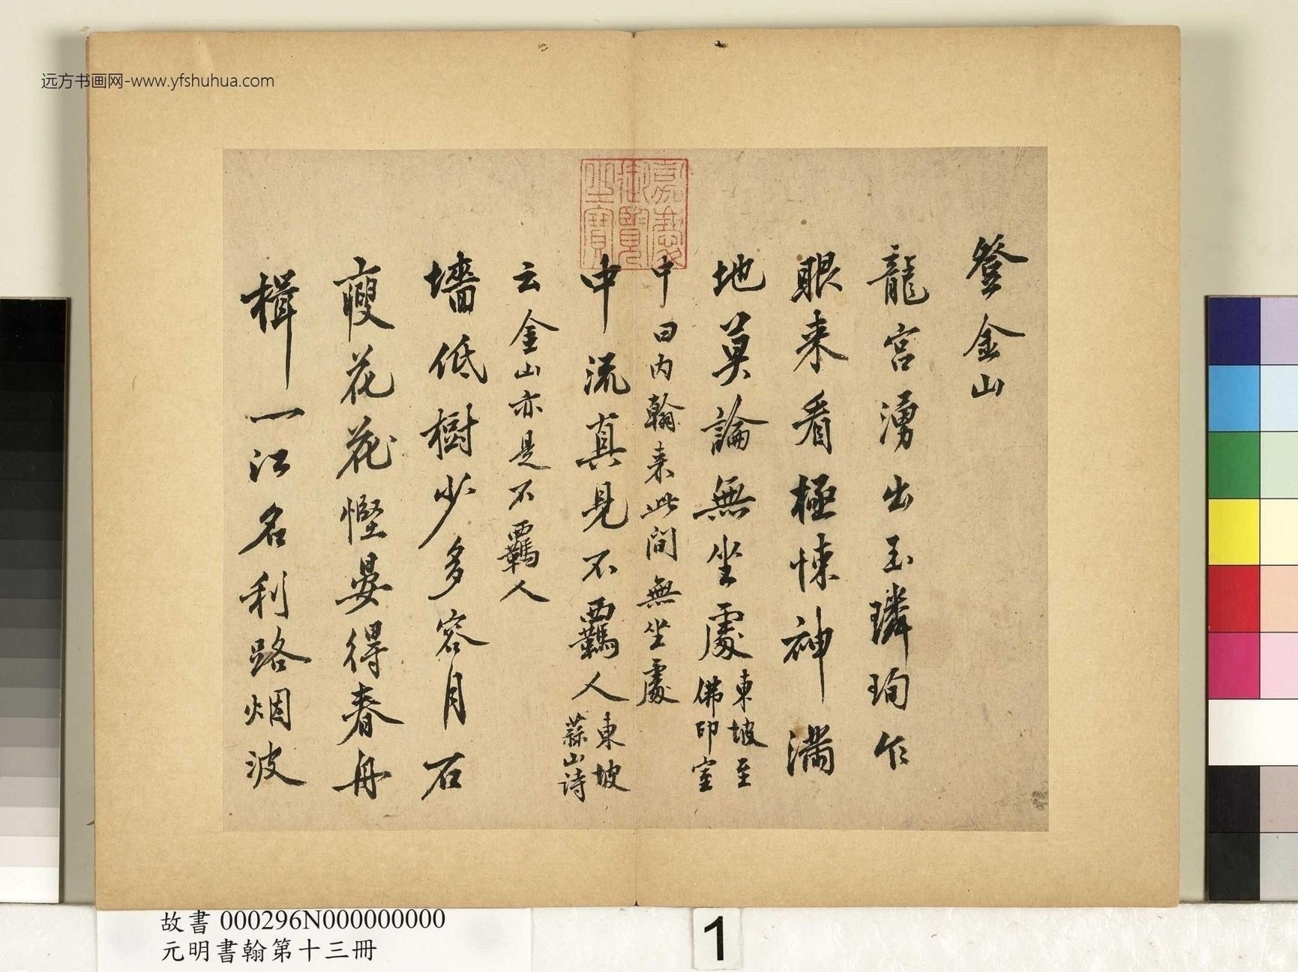 登金山
龍宮湧出玉璘珣乍
眼来看極悚神滿
地莫論無坐處東坡至
佛印室
中曰内翰来此間無坐處
中流真見不羈人東坡
蒜山诗
云金山亦是不羈人
墻低樹少多容月石
瘦花花慳晏得春舟
楫一江名利路烟波
嘉慶
御覽
之寶
远方书画网-www.yfshuhua.com
故書 000296N000000000
元明書翰第十三冊
1